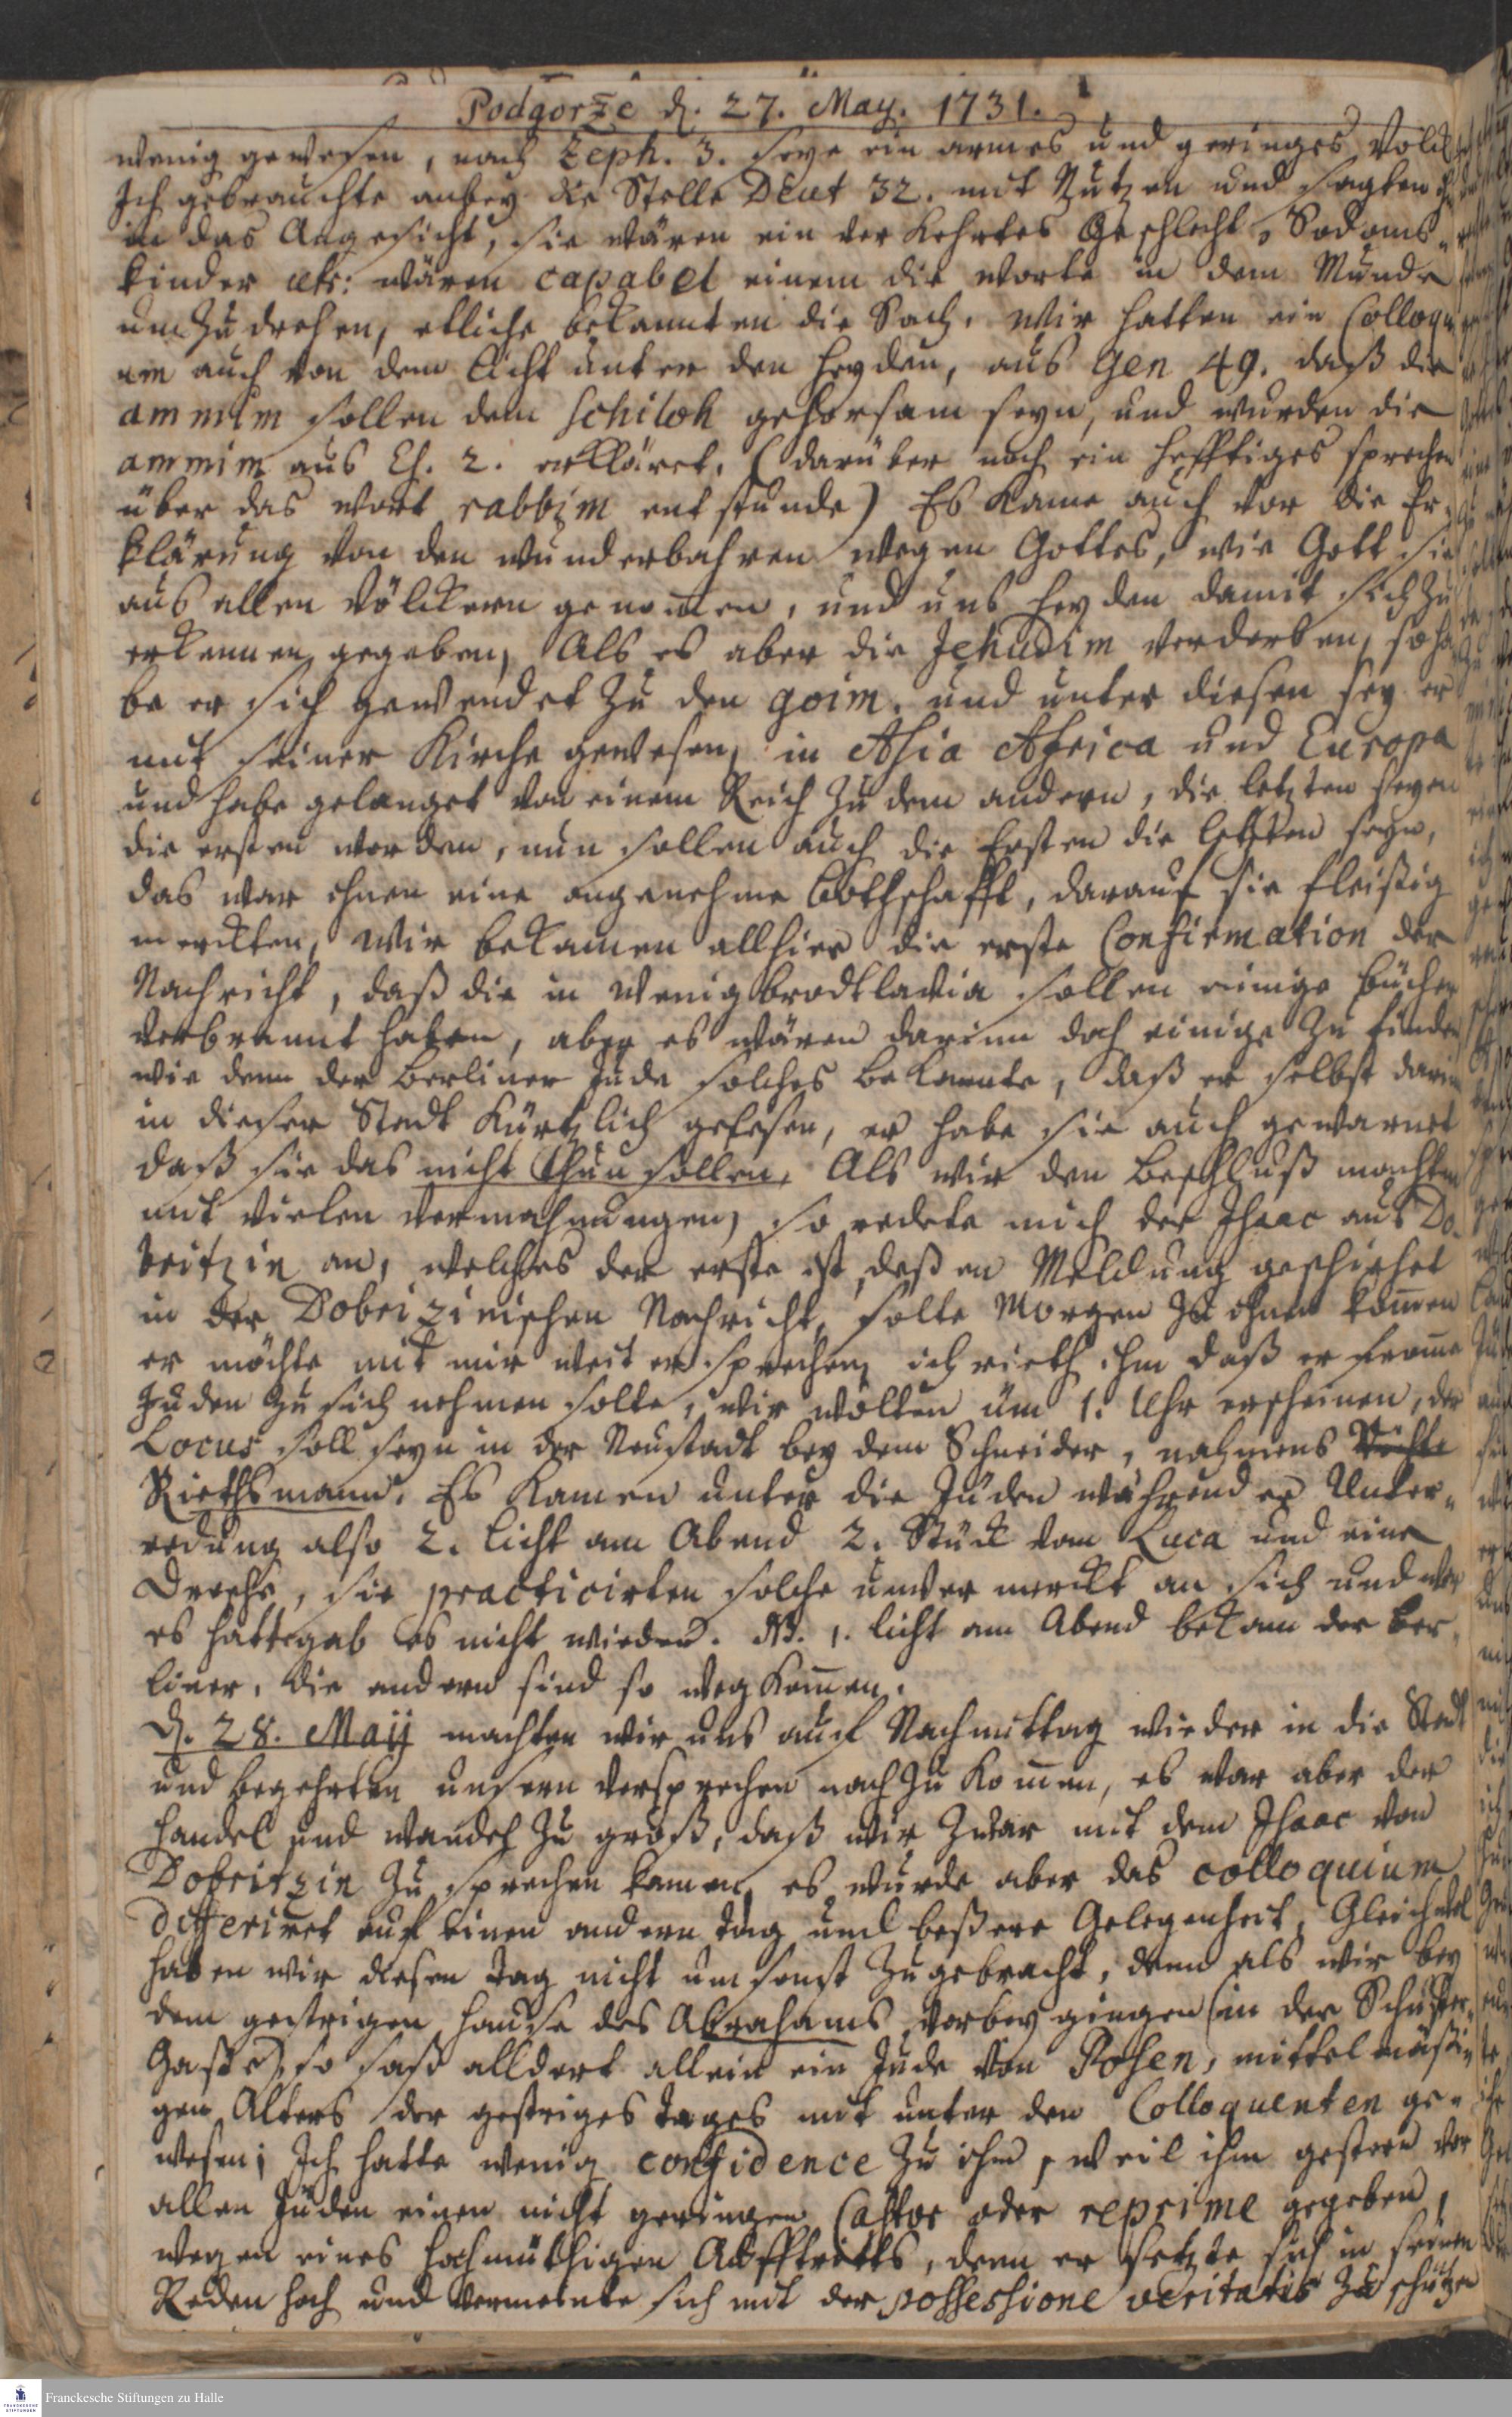 Podgorze d. 27. May. 1731.
wenig gewesen, nach Zeph. 3. seye ein armes und geringes Volck
Ich gebrauchte anbey die Stelle Deut 32. mit Nutzen und sagten
in das Angesicht, sie wären ein verkehrtes Geschlecht, Sodoms-
kinder etc: wären capabel einem die Worte in dem Munde
umzudrehen, etliche bekannten die Sach. Wir hatten ein Colloqui
um auch von dem Licht unter den Heyden, aus Gen 49. daß die
ammim sollen dem Schiloh gehorsam seyn, und wurden die
ammim aus Es. 2. erkläret, (darüber noch ein hefftiges sprechen
über das Wort rabbim entstunde) Es kame auch vor die Er-
klärung von den wunderbahren Wegen Gottes, wie Gott sie
aus allen Völckern genom̅en, und uns Heyden damit sich zu
erkennen gegeben, Als es aber die Jehudim verderben, so ha
be er sich gewendet zu den goim. und unter diesen sey er
mit seiner Kirche gewesen, in Asia Africa und Europa
und habe gelanget von einem Reich zu dem andern, die letzten seyen
die ersten worden, nun sollen auch die Ersten die letzten seyn,
das war ihnen eine angenehme Bothschafft, darauf sie fleißig
merckten, Wir bekamen allhier die erste Confirmation der
Nachricht, daß die in Wenigbrodtlavia sollen einige Bücher
verbrannt haben, aber es wären darinn doch einige zu finden
wie denn der Berliner Jude solches bekannte, daß er selbst darin
in dieser Stadt kürtzlich gelesen, er habe sie auch gewarnet
daß sie das nicht thun sollen, Als wir den Beschluß machten
mit vielen Vermahnungen, so redete mich der Isaac aus Do-
britzin an, welches der erste ist, deßen Meldung geschiehet
in der Dobrizinischen Nachricht, solte Morgen zu ihnen kom̅en
er möchte mit mir weiter sprechen, ich rieth ihm daß er from̅e
Juden zu sich nehmen solte, wir wolten um 1. Uhr erscheinen, der
Locus soll seyn in der Neustadt bey dem Schneider, nahmens
Riethsmann. Es kamen unter die Juden während er Unter-
redung also 2. Licht am Abend 2. Stück vom Luca und eine
Drechs, sie practicirten solche unvermerckt an sich und wer
es hatte gab es nicht wieder. NB. 1. Licht am Abend bekam der Ber-
liner, die andern sind so weg kom̅en.
d. 28. Maij machten wir uns auch Nachmittag wieder in die Stadt
und begehrten unsern Versprechen nach zu kom̅en, es war aber der
Handel und Wandel zu groß, daß wir zwar mit dem Isaac von
Dobritzin zu sprechen kamen, es wurde aber das colloquium
differiret auf einen andern Tag und beßere Gelegenheit, Gleichwol
haben wir diesen Tag nicht umsonst zugebracht, denn als wir bey
dem gestrigen Hause des Abrahams vorbey gingen (in der Schuster-
Gaße), so saß alldort allein ein Jude von Posen, mittelmäßi-
gen Alters der gestriges Tages mit unter den Colloquenten ge-
wesen; Ich hatte wenig confidence zu ihm, weil ihm gestern vor
allen Juden einen nicht geringen Castor oder reprime gegeben,
wegen eines hochmüthigen Aufftritts, denn er setzte sich in seinen
Reden hoch und vermeinte sich mit der possessione veritatis zu schützen
Franckesche Stiftungen zu Halle